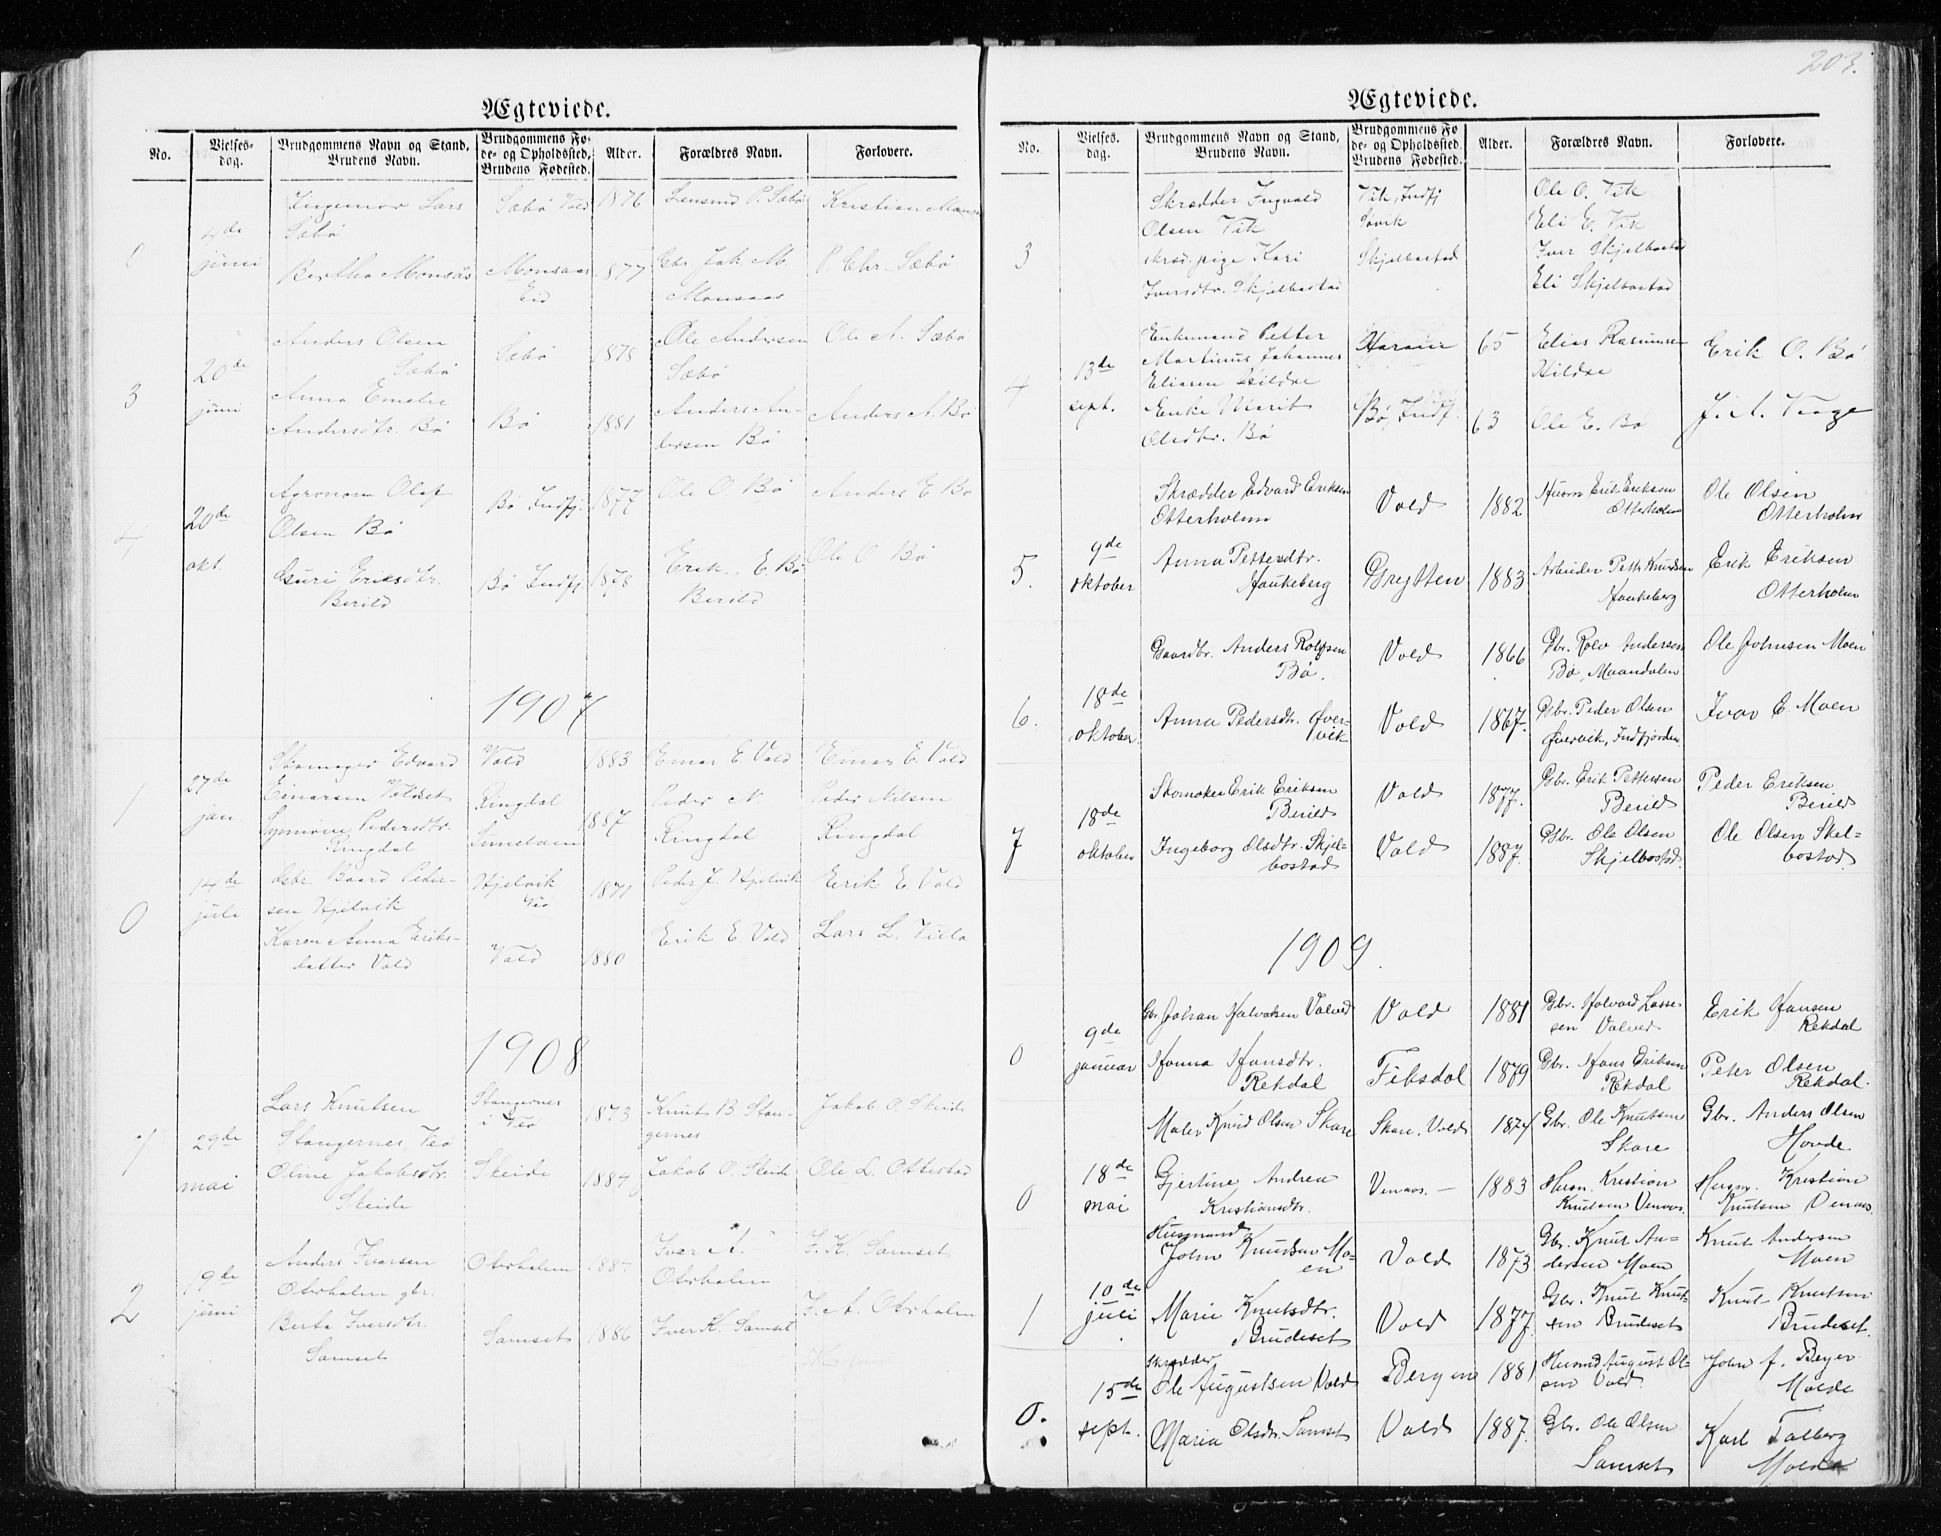 203.
Ægteviede.
No.
Vielses-
dag.
Brudgommens Navn og Stand,
Brudens Navn.
Brudgommens Fø-
de- og Opholdssted,
Brudens Fødested.
Alder.
Forældres Navn.
Forlovere.
Lars
Sæbø
Sæbø Vold
1876
P. Sæbø
Kristian
0
4de
juni
Bertha Monsås
Monsaas
Eid
1877
Gbr. Jak M.
Monsaas
P. Chr. Sæbø
3
20de
juni
Anders Olsen
Sæbø
Sæbø
1878
Ole Andersen
Sæbø
Ole A. Sæbø
Anna Emelie
Andersdtr. Bø
Bø
1881
Anders An-
dersen Bø
Anders A. Bø
4
20de
okt.
Agronom Olaf
Olsen Bø
Bø Indfj.
1877
Ole O. Bø
Anders E. Bø
Guri Eriksdtr.
Berild
Bø Indfj
1878
Erik E. Bø
Berild
Ole O. Bø
1907
1
27de
jan.
Skomager Edvard
Einarsen Voldset
Vold
1883
Einar E. Vold
Einar E. Vold
Synnøve Pedersdtr.
Ringdal
Ringdal
1887
Peder N.
Ringdal
Peder Nilsen
Ringdal
0
14de
juli
Gbr. Baard Peder-
sen Hjelvik
Hjelvik
Veø
1871
Peder J. Hjelvik
Erik E. Vold
Karen Anna Eriks-
datter Vold
Vold
1880
Erik E. Vold
Lars L. Villa
1908
1
29de
mai
Lars Knutsen
Stangernes, Veø
Stangernes
i Veø
1873
Knut B. Stan-
gernes
Jakob O. Skeide
Oline Jakobsdtr.
Skeide
Skeide
1884
Jakob O. Skeide
Ole L. Otterstad
2
19de
juni
Anders Iversen
Oterholm, gbr.
Oterholm
1884
Iver A.
Oterholm
I. K. Samset
Berta Iversdtr.
Samset
Samset
1886
Iver K. Samset
I. A. Oterholm
Ægteviede.
No.
Vielses.
dag.
Brudgommens Navn og Stand,
Brudens Navn.
Brudgommens Fø
de- og Opholdssted,
Brudens Fødested.
Alder.
Forældres Navn.
Forlovere.
3
Skrædder Ingvald
Olsen Vik
Vik, Indfj
Ole O. Vik
Eli E. Vik
pige Kari
Iversdtr. Skjelbostad
Skjelbostad
Iver Skjelbostad
Eli Skjelbostad
4
13de
sept.
Enkemand Petter
Martinus Johannes
Eliasen Hildre
Haram
65
Elias Rasmussen
Hildre
Erik O. Bø
Enke Marit
Olsdtr. Bø
Bø, Indfj.
63
Ole E. Bø
J. A. Vaage
5.
9de
oktober
Skrædder Edvard Eriksen
Otterholm
Vold
1882
Husm Erik Eriksen
Otterholm
Ole Olsen
Otterholm
Anna Pettersdtr.
Haukeberg
Grytten
1883
Arbeider Petter Knudsen
Haukeberg
Erik Eriksen
Otterholm
6.
18de
oktober
Gaardbr. Anders Rolfsen
Bø.
Vold
1866
Gbr. Rolv Andersen
Bø, Maandalen
Ole Johnsen Moen
Anna Pedersdtr. Øver-
vik
Vold
1867
Gbr. Peder Olsen
Øvervik, Indfjorden
Ivar E. Moen
7
18de
oktober
Skomaker Erik Eriksen
Berild
Vold
1877.
Gbr. Erik Pettersen
Berild
Peder Eriksen
Berild
Ingeborg Olsdtr. Skjel-
bostad
Vold
1887.
Gbr. Ole Olsen
Skjelbostad
Ole Olsen Skel-
bostad
1909.
0
9de
januar
Gbr Johan Halvorsen Valved
Vold
1881
Gbr. Halvard Lasse-
sen Valved
Erik Hansen
Rekdal
Hanna Hansdtr.
Rekdal
Fiksdal
1879
Gbr. Hans Eriksen
Rekdal
Peter Olsen
Rekdal.
0
18de
mai
Maler Knud Olsen Skare
Skare, Vold
1874
Gbr. Ole Knutsen
Skare
Gbr. Anders Olsen
Hovde
Gjertine Andrea
Kristiansdtr.
Venaas. —
1883
Husm. Kristian
Knudsen Venaas.
Husm. Kristian
Knutsen Venaas.
1
10de
juli
Husmand
John Knudsen Mo-
en
Vold
1873
Gbr. Knut An-
dersen Moen
Knut Andersen
Moen
Marie Knutsdtr.
Brudeset
Vold
1877
Gbr. Knut Knut-
sen Brudeset
Knut Knutsen
Brudeset.
0.
15de
sept.
Skrædder
Ole Augustsen Vold
Bergen
1881
Husmd August Ol-
sen Vold.
John J. Beyer
Molde
Maria Olsdtr. Samset
Vold
1887.
Gbr. Ole Olsen
Samset
Karl Talberg
Molde